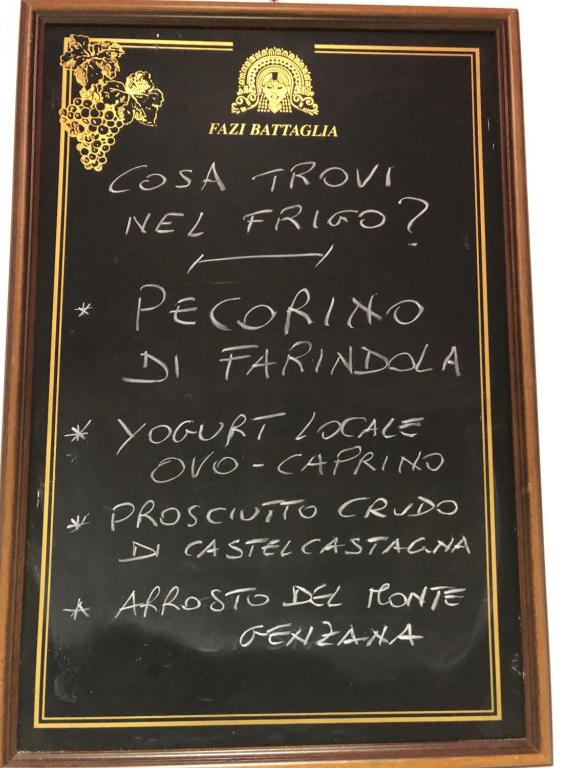 FAZI BATTAGLIA
COSA TROVI
NEL FRIGO?
* PECORINO
DI FARINDOLA
* YOGURT LOCALE
OVO-CAPRINO
* PROSCIUTTO CRUDO
DI CASTELCASTAGNA
* ARROSTO DEL MONTE
GENZANA